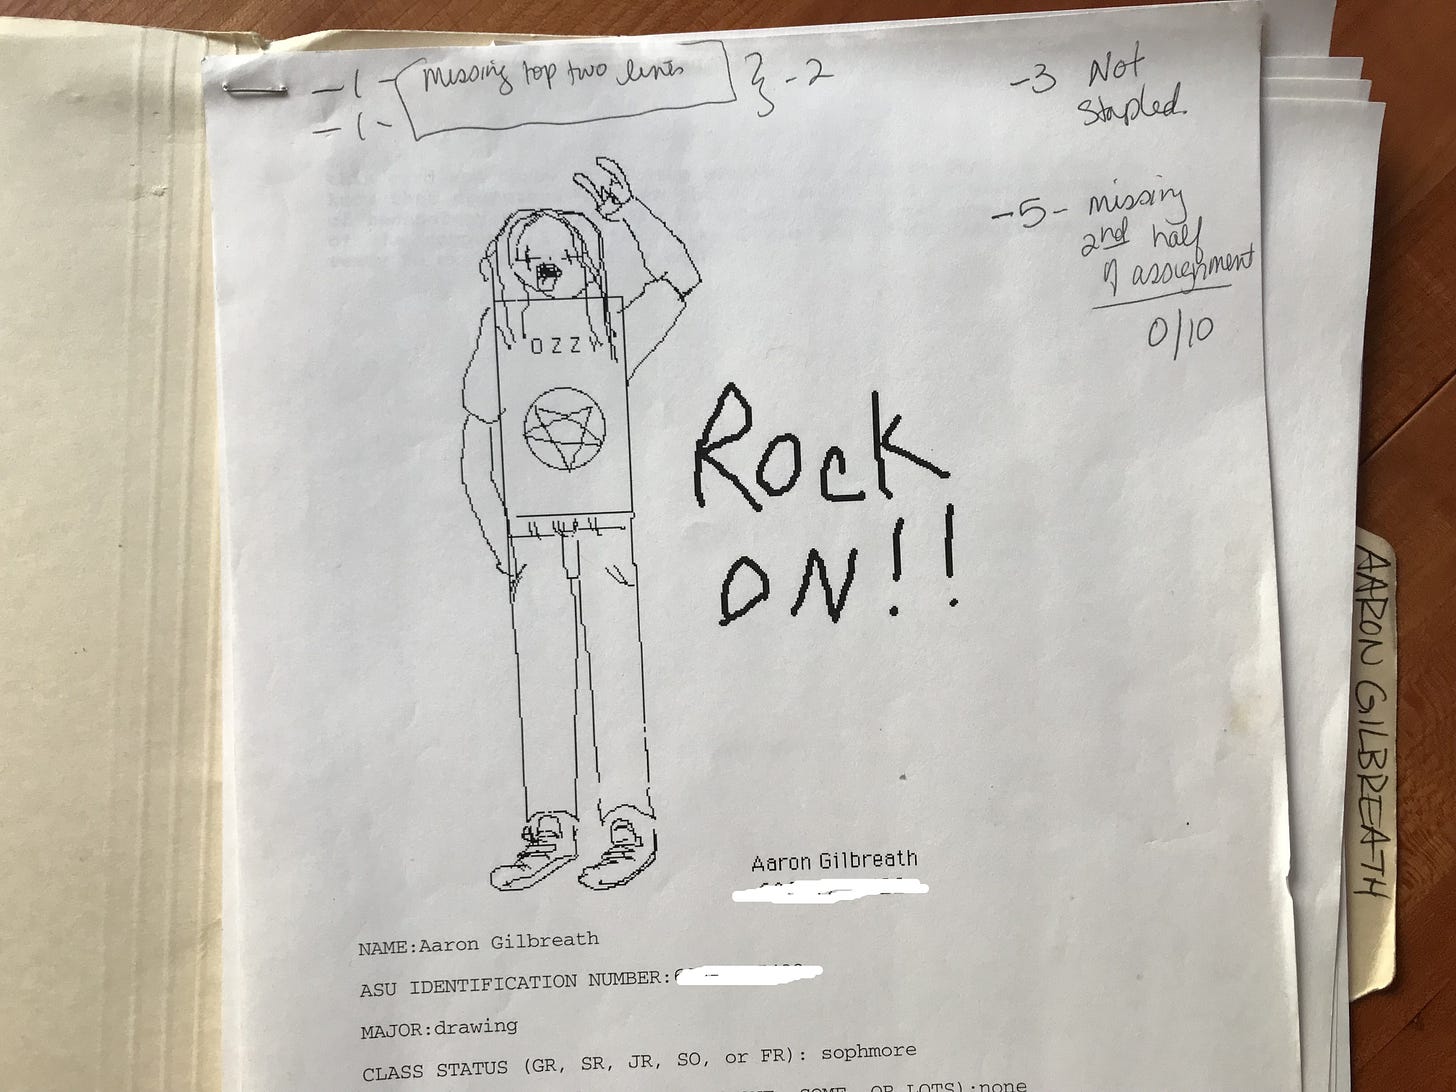 -1 - Missing top two lines } -2
-1-
-3 Not
Stapled.
-5- missing
2nd half
of assignment
0/10
OZZY
ROCK
ON!!
Aaron Gilbreath
NAME:Aaron Gilbreath
ASU IDENTIFICATION NUMBER:
MAJOR:drawing
CLASS STATUS (GR, SR, JR, SO, or FR): sophmore
SOME, OR LOTS):none
AARON GILBREATH